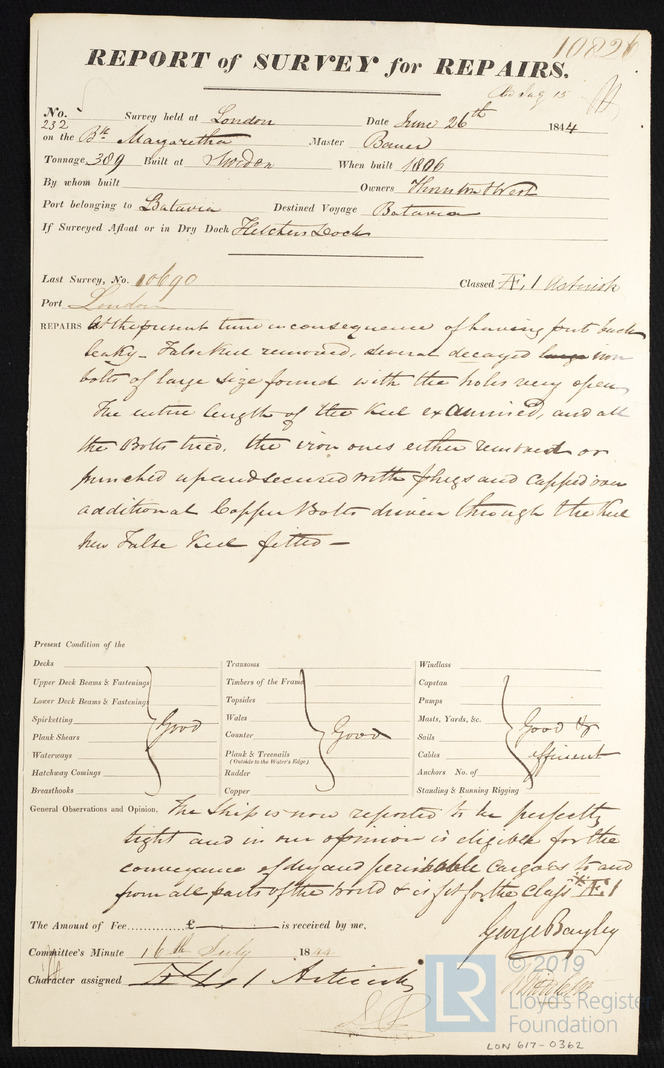 10826
REPORT of SURVEY for REPAIRS.
No. 232 Survey held at London Date June 26th 1844
on the Bk Margaretha Master Bauer
Tonnage 389 Built at Sweden When built 1806
By whom built Owners Thornton & West
Port belonging to Batavia Destined Voyage Batavia
If Surveyed Afloat or in Dry Dock Fletchers Dock
Last Survey, No. 10690 Classed Æ.1 Asterisk
Port London
REPAIRS At the present time in consequence of having put back
leaky - False Keel removed, several decayed large iron
bolts of large size found with the holes very open,
The entire length of the Keel examined, and all
the Bolts tried, the iron ones either removed or
punched up and secured with plugs and capped over
additional Copper Bolts driven through the Keel
new False Keel fitted -
Present Condition of the
Decks
Upper Deck Beams & Fastenings
Lower Deck Beams & Fastenings
Spirketting
Plank Shears
Waterways
Hatchway Comings
Breasthooks
Good
Transoms
Timbers of the Frame
Topsides
Wales
Counter
Plank & Treenails
(Outside to the Water's Edge)
Rudder
Copper
Good
Windlass
Capstan
Pumps
Masts, Yards, &c.
Sails
Cables
Anchors No. of
Standing & Running Rigging
Good &
efficient
General Observations and Opinion. The Ship is now reported to be perfectly
tight and in our opinion is eligible for the
conveyance of dry and perishable Cargoes to and
from all parts of the World & is fit for the Class *Æ.1
The Amount of Fee............£ is received by me,
George Bayley
Committee's Minute 16th July 1844
Character assigned Æ 1 Asterisk
© 2019
LR
Lloyd's Register
Foundation
LON 617-0362